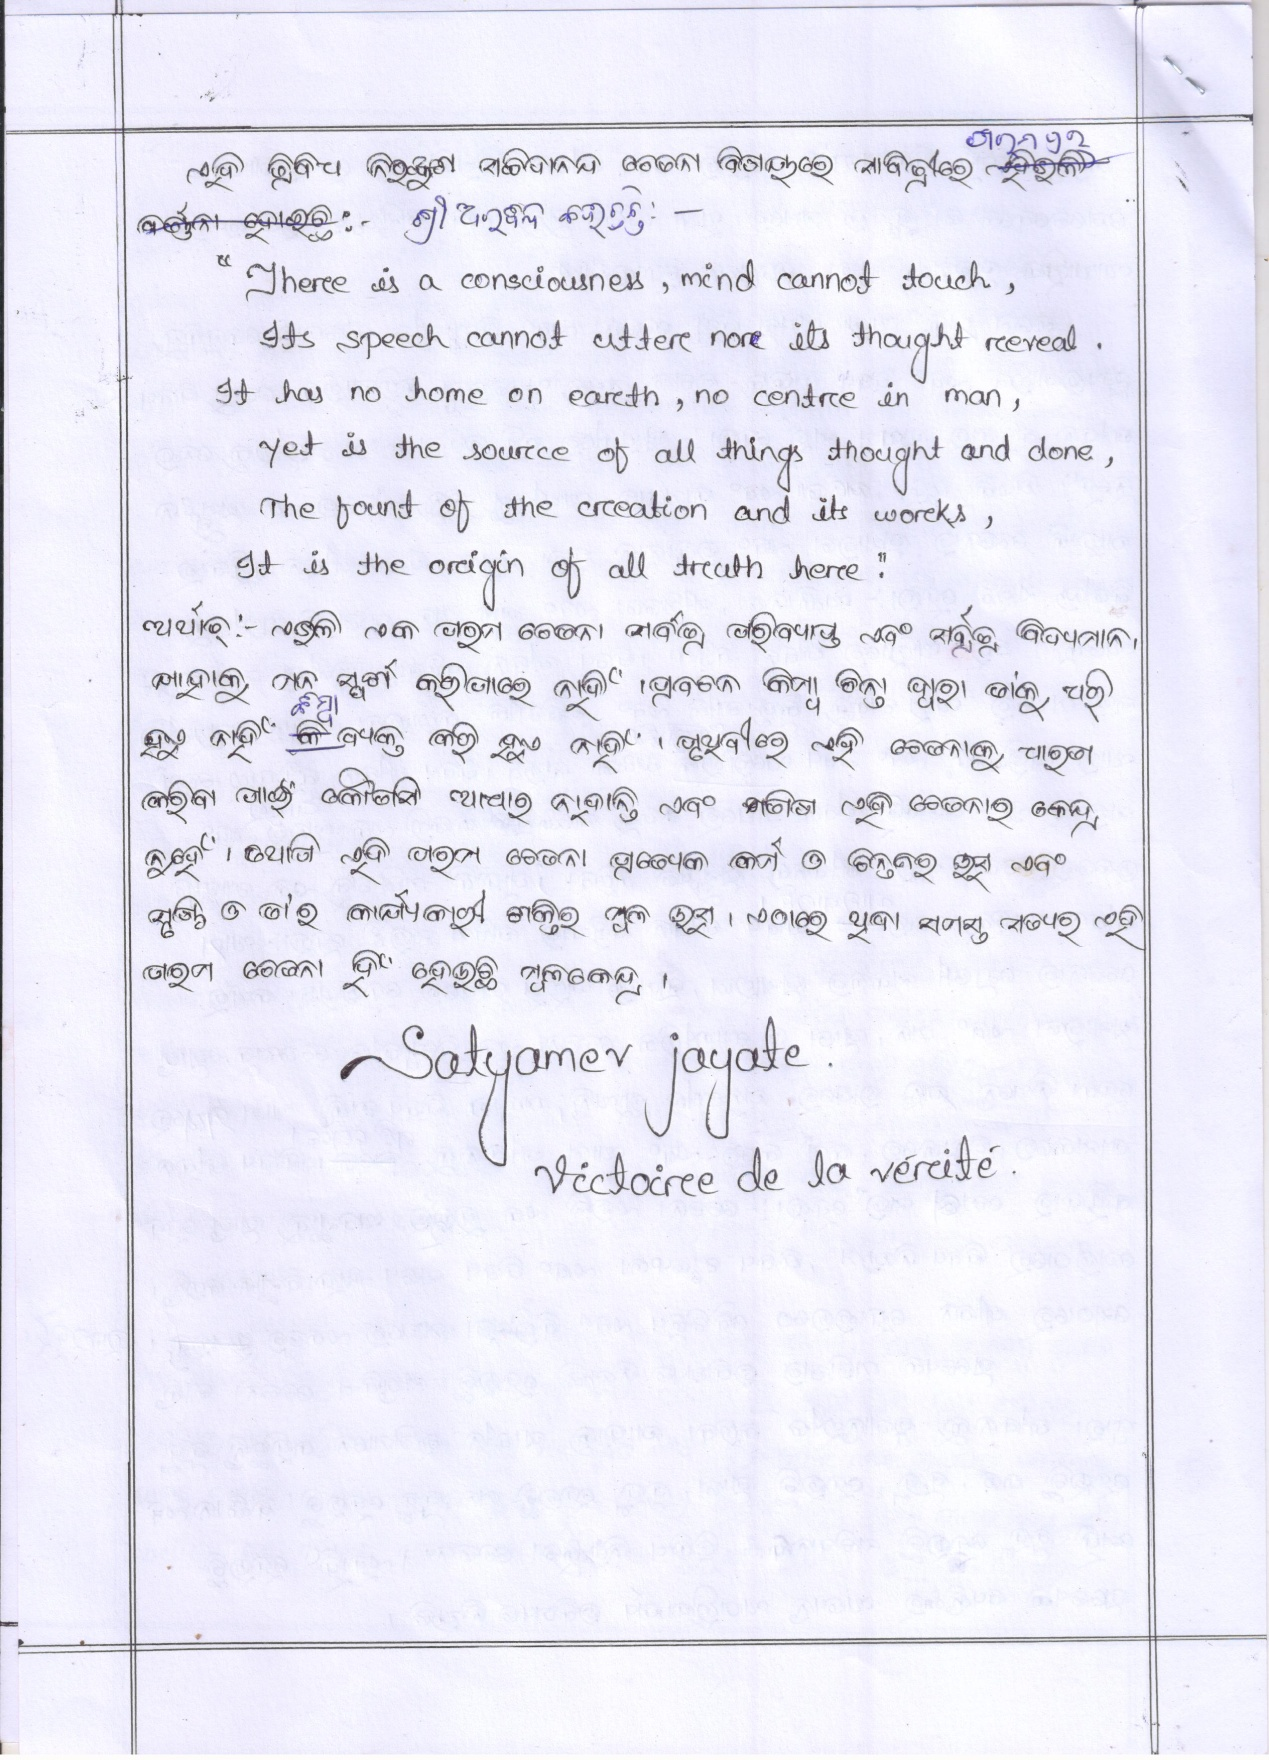 ଏହି ତ୍ରିବିଧ ନିରଙ୍କୁଶ ସଚ୍ଚିଦାନନ୍ଦ ଚେତନା ବିଷୟରେ ସାବିତ୍ରୀରେ
ବର୍ଣ୍ଣନା ହୋଇଛି :- ଶ୍ରୀ ଅରବିନ୍ଦ କହିଛନ୍ତି : —
" There is a consciousness, mind cannot touch,
Its speech cannot utter nor its thought reveal.
It has no home on earth, no centre in man,
Yet is the source of all things thought and done,
The fount of the creation and its works,
It is the origin of all truth here."
ଅର୍ଥାତ୍ :- ଏଭଳି ଏକ ପରମ ଚେତନା ସର୍ବତ୍ର ପରିବ୍ୟାପ୍ତ ଏବଂ ସର୍ବତ୍ର ବିଦ୍ୟମାନ।
ଯାହାକୁ ମନ ସ୍ପର୍ଶ କରିପାରେ ନାହିଁ । ପ୍ରବଚନ କିମ୍ବା ଚିନ୍ତା ଦ୍ୱାରା ତାଙ୍କୁ ଧରି
ହୁଏ ନାହିଁ କିମ୍ବା ବ୍ୟକ୍ତ କରି ହୁଏ ନାହିଁ । ପୃଥିବୀରେ ଏହି ଚେତନାକୁ ଧାରଣ
କରିବା ପାଇଁ କୌଣସି ଆଧାର ନାହାନ୍ତି ଏବଂ ମଣିଷ ଏହି ଚେତନାର କେନ୍ଦ୍ର
ନୁହେଁ । ତଥାପି ଏହି ପରମ ଚେତନା ପ୍ରତ୍ୟେକ କର୍ମ ଓ ଚିନ୍ତନର ଉତ୍ସ ଏବଂ
ସୃଷ୍ଟି ଓ ତା'ର କାର୍ଯ୍ୟକାରୀ ଶକ୍ତିର ମୂଳ ଉତ୍ସ । ଏଠାରେ ଥିବା ସମସ୍ତ ସତ୍ୟର ଏହି
ପରମ ଚେତନା ହିଁ ହେଉଛି ମୂଳକେନ୍ଦ୍ର ।
Satyamev jayate.
Victoire de la vérité.